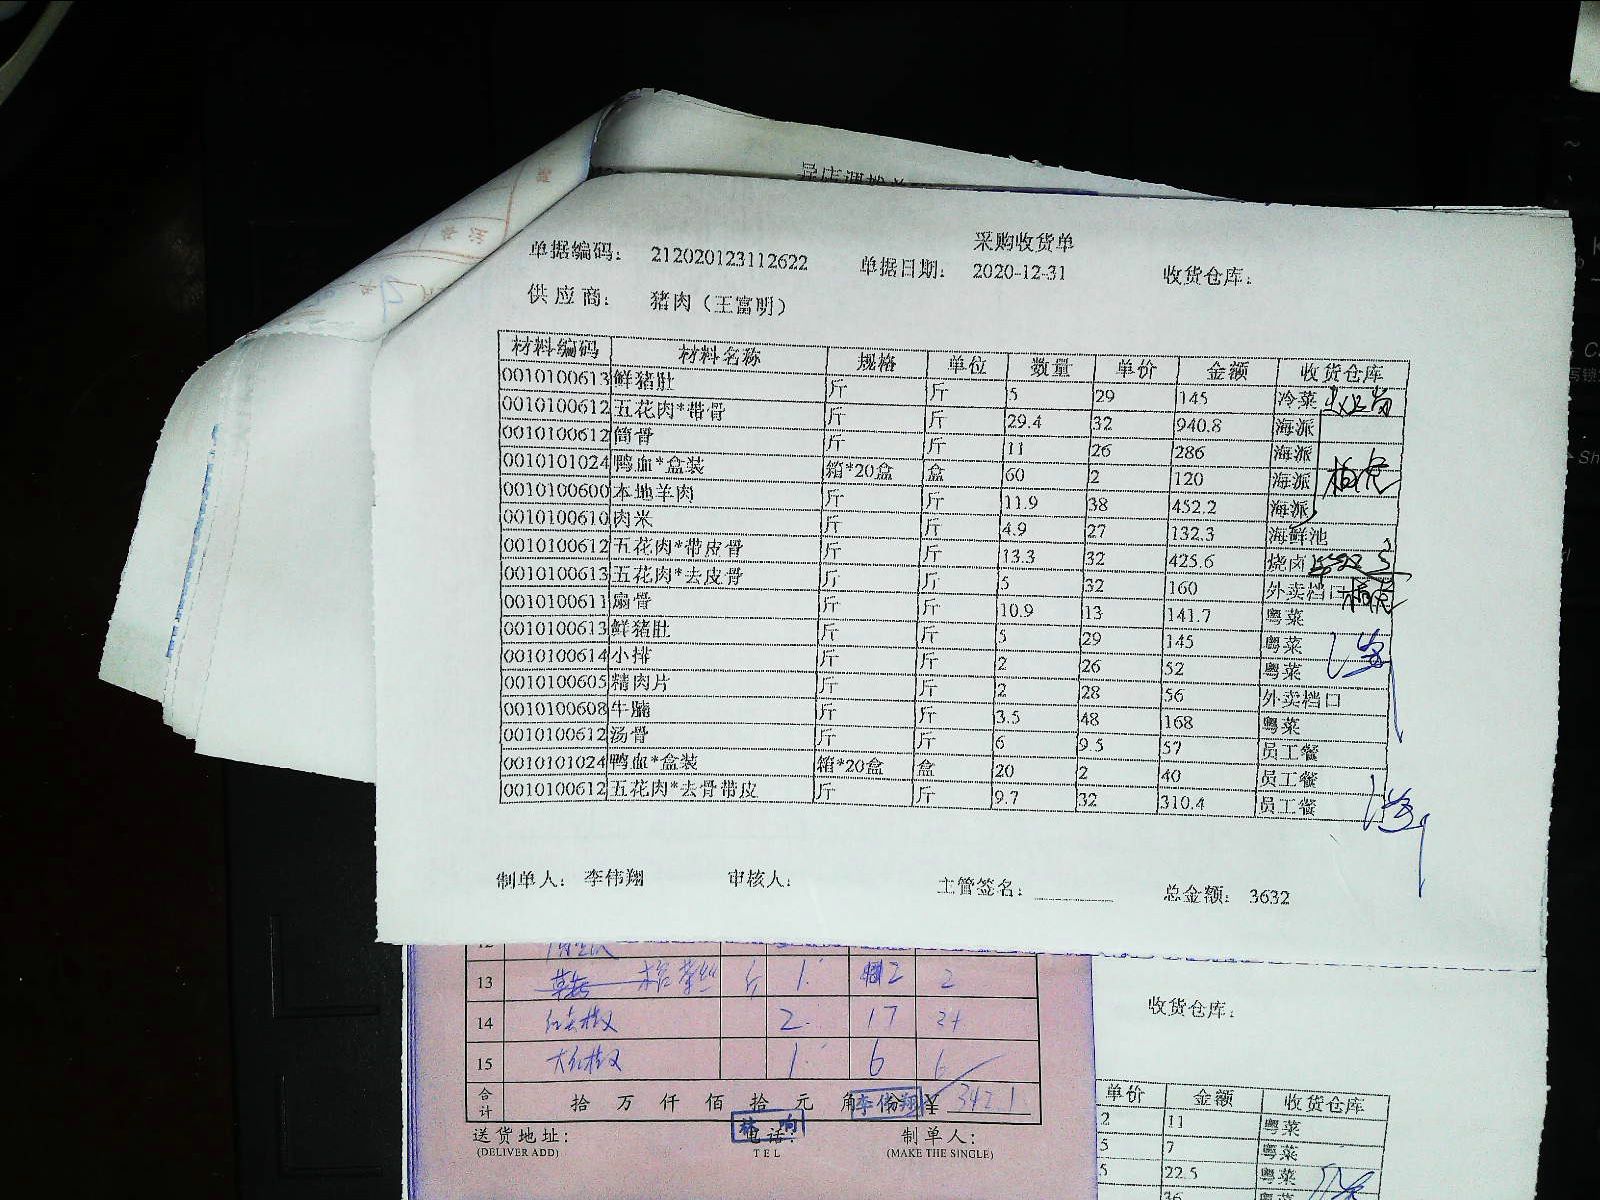 采购收货单
单据编码: 212020123112622 单据日期: 2020-12-31 收货仓库:
供应商: 猪肉（王富明）
材料编码 材料名称 规格 单位 数量 单价 金额 收货仓库
0010100613 鲜猪肚 斤 斤 5 29 145 冷菜
0010100612 五花肉*带骨 斤 斤 29.4 32 940.8 海派
0010100612 筒骨 斤 斤 11 26 286 海派
0010101024 鸭血*盒装 箱*20盒 盒 60 2 120 海派
0010100600 本地羊肉 斤 斤 11.9 38 452.2 海派
0010100610 肉米 斤 斤 4.9 27 132.3 海鲜池
0010100612 五花肉*带皮骨 斤 斤 13.3 32 425.6 烧卤
0010100613 五花肉*去皮骨 斤 斤 5 32 160 外卖档口
0010100611 扇骨 斤 斤 10.9 13 141.7 粤菜
0010100613 鲜猪肚 斤 斤 5 29 145 粤菜
0010100614 小排 斤 斤 2 26 52 粤菜
0010100605 精肉片 斤 斤 2 28 56 外卖档口
0010100608 牛腩 斤 斤 3.5 48 168 粤菜
0010100612 汤骨 斤 斤 6 9.5 57 员工餐
0010101024 鸭血*盒装 箱*20盒 盒 20 2 40 员工餐
0010100612 五花肉*去骨带皮 斤 斤 9.7 32 310.4 员工餐
制单人: 李伟翔 审核人: 主管签名: 总金额: 3632
13 1 2 2
14 2 17
15 1 6 6
合计 拾 万 仟 佰 拾 元 角 分 ¥
李伟翔
送货地址: 电话: 制单人:
(DELIVER ADD) TEL (MAKE THE SINGLE)
收货仓库:
单价 金额 收货仓库
2 11 粤菜
5 7 粤菜
5 22.5 粤菜
36 粤菜